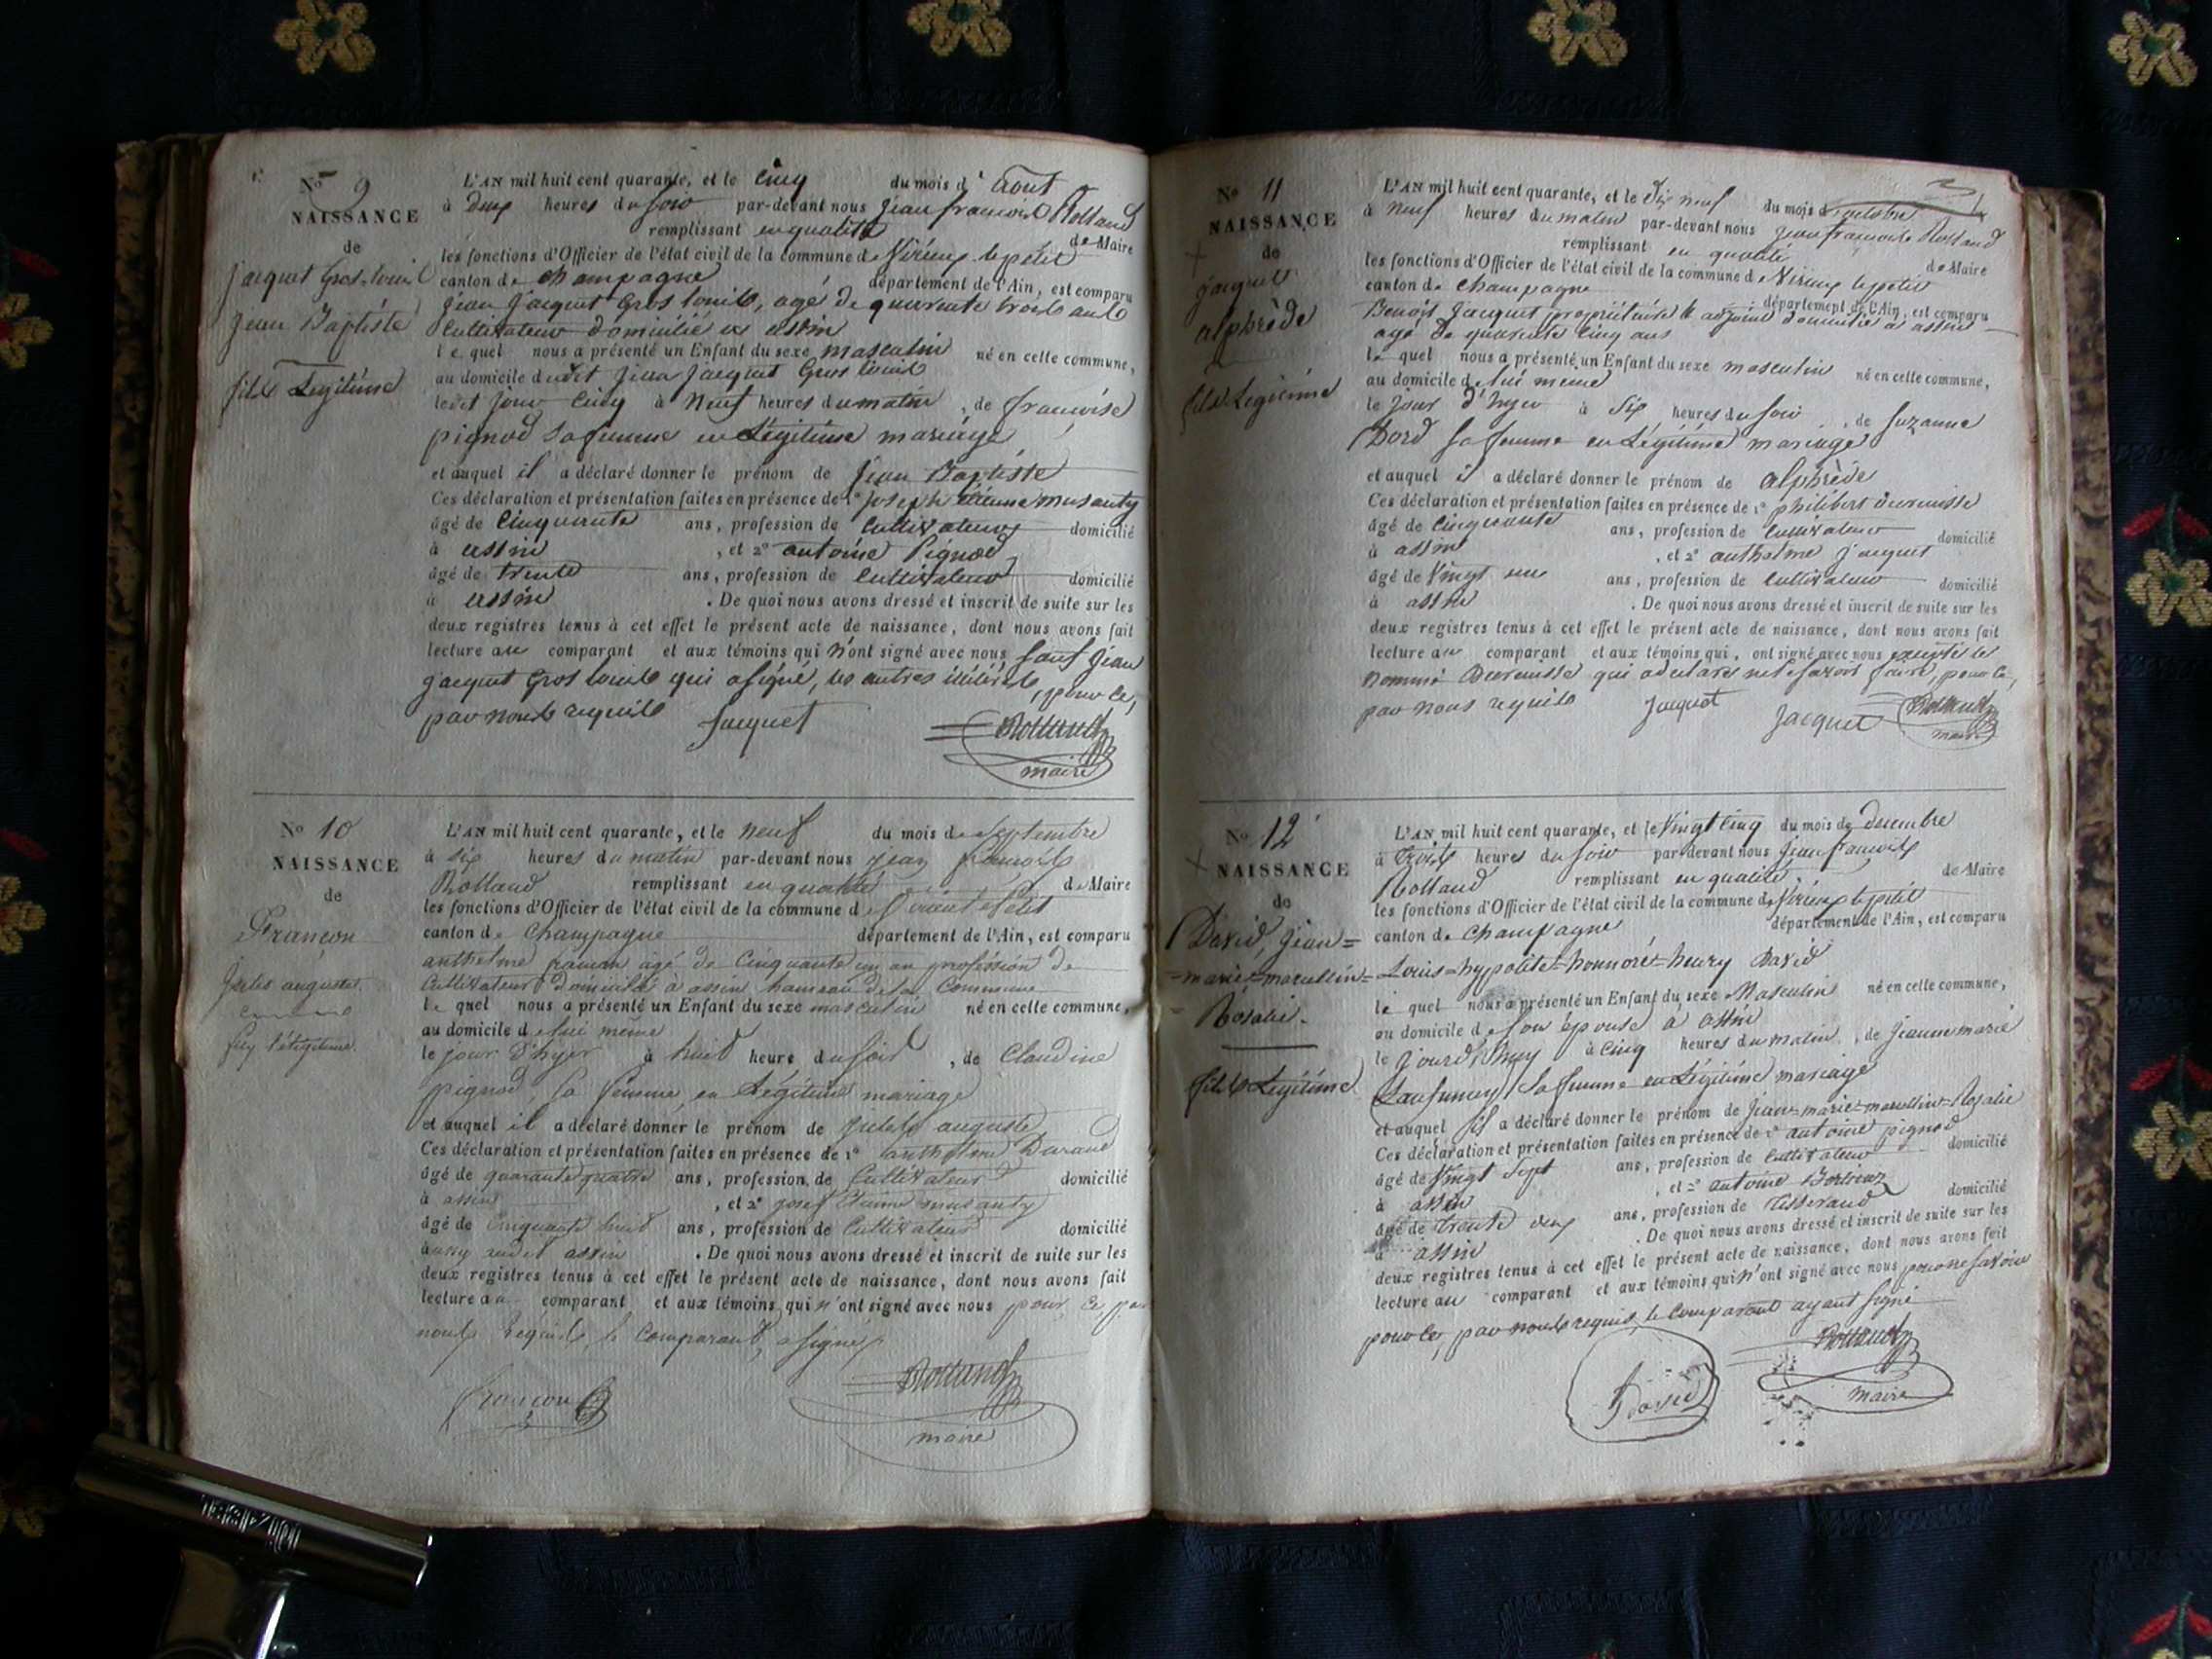 No 9
NAISSANCE
de
jacquet Gros-louis
Jean Baptiste
fils Légitime
L'AN mil huit cent quarante, et le Cinq du mois d'Aout
à deux heures du soir par-devant nous Jean francois Rolland
remplissant en qualité de Maire
les fonctions d'Officier de l'état civil de la commune de Virieux lepetit
canton de Champagne département de l'Ain, est comparu
Jean Jacquet Gros louis, agé de quarente trois ans
Cultivateur domicilié a assin
le quel nous a présenté un Enfant du sexe masculin né en cette commune,
au domicile dudit Jean Jacquet Gros louis
ledit jour Cinq à Neuf heures du matin, de francoise
pignod sa femme en Légitime mariage
et auquel il a déclaré donner le prénom de Jean Baptiste
Ces déclaration et présentation faites en présence de 1° joseph Etienne musanty
âgé de Cinquante ans, profession de Cultivateur domicilié
à assin, et 2° antoine Pignod
âgé de trente ans, profession de Cultivateur domicilié
à assin. De quoi nous avons dressé et inscrit de suite sur les
deux registres tenus à cet effet le présent acte de naissance, dont nous avons fait
lecture au comparant et aux témoins qui n'ont signé avec nous sauf Jean
jacquet Gros louis qui a signé, les autres illitérés, pour ce,
par nous requis Jacquet Rolland
maire
No 10
NAISSANCE
de
Françon
Jules auguste
L'AN mil huit cent quarante, et le neuf du mois de Septembre
à six heures du matin par-devant nous jean françois
Rolland remplissant en qualité de Maire
les fonctions d'Officier de l'état civil de la commune de
canton de Champagne département de l'Ain, est comparu
anthelme agé de Cinquante un an profession de
Cultivateur domicilié à assin hameau de la Commune
le quel nous a présenté un Enfant du sexe masculin né en cette commune,
au domicile de lui même
le jour d'hyer à huit heure du soir, de Claudine
pignod, sa femme en Légitime mariage
et auquel il a déclaré donner le prénom de jules auguste
Ces déclaration et présentation faites en présence de 1° anthelme Durand
âgé de quarante quatre ans, profession de Cultivateur domicilié
à assin, et 2° josef Etienne musanty
âgé de Cinquante huit ans, profession de Cultivateur domicilié
audit assin. De quoi nous avons dressé et inscrit de suite sur les
deux registres tenus à cet effet le présent acte de naissance, dont nous avons fait
lecture au comparant et aux témoins qui n'ont signé avec nous pour ce par
nous requis, le Comparant a signé
Françon Rolland
maire
No 11
NAISSANCE
de
jacquet
alphrède
fils Legitime
L'AN mil huit cent quarante, et le dix neuf du mois d'octobre
à neuf heures du matin par-devant nous Jean francois Rolland
remplissant en qualité de Maire
les fonctions d'Officier de l'état civil de la commune de Virieux lepetit
canton de Champagne département de l'Ain, est comparu
Benoit Jacquet propriétaire & adjoint domicilié à assin
agé de quarente cinq ans
le quel nous a présenté un Enfant du sexe masculin né en cette commune,
au domicile de lui même
le jour d'hyer à Six heures du soir, de Suzanne
Bord sa femme en Légitime mariage
et auquel il a déclaré donner le prénom de alphrède
Ces déclaration et présentation faites en présence de 1° philibert
âgé de Cinquante ans, profession de Cultivateur domicilié
à assin, et 2° anthelme jacquet
âgé de Vingt ans, profession de Cultivateur domicilié
à assin. De quoi nous avons dressé et inscrit de suite sur les
deux registres tenus à cet effet le présent acte de naissance, dont nous avons fait
lecture au comparant et aux témoins qui, ont signé avec nous excepté le
nommé qui a déclaré ne le savoir faire, pour ce,
par nous requis Jacquet Jacquet Rolland
maire
No 12
NAISSANCE
de
David, Jean=
=marie=marcellin=
=Rosalie.
fils Légitime
L'AN mil huit cent quarante, et le Vingt Cinq du mois de decembre
à trois heures du soir par-devant nous Jean francois
Rolland remplissant en qualité de Maire
les fonctions d'Officier de l'état civil de la commune de Virieux lepetit
canton de Champagne département de l'Ain, est comparu
Louis=hypolite=honnoré=henry David
le quel nous a présenté un Enfant du sexe Masculin né en cette commune,
au domicile de son épouse à assin
le jourd'huy à Cinq heures du matin, de Jeanne marie
sa femme en Légitime mariage
et auquel il a déclaré donner le prénom de Jean=marie=marcellin=Rosalie
Ces déclaration et présentation faites en présence de 1° antoine pignod
âgé de Vingt Sept ans, profession de Cultivateur domicilié
à assin, et 2° antoine
âgé de trente deux ans, profession de Tisserand domicilié
à assin. De quoi nous avons dressé et inscrit de suite sur les
deux registres tenus à cet effet le présent acte de naissance, dont nous avons fait
lecture au comparant et aux témoins qui n'ont signé avec nous pour ne savoir
pour ce, par nous requis, le Comparant ayant signé
David Rolland
maire